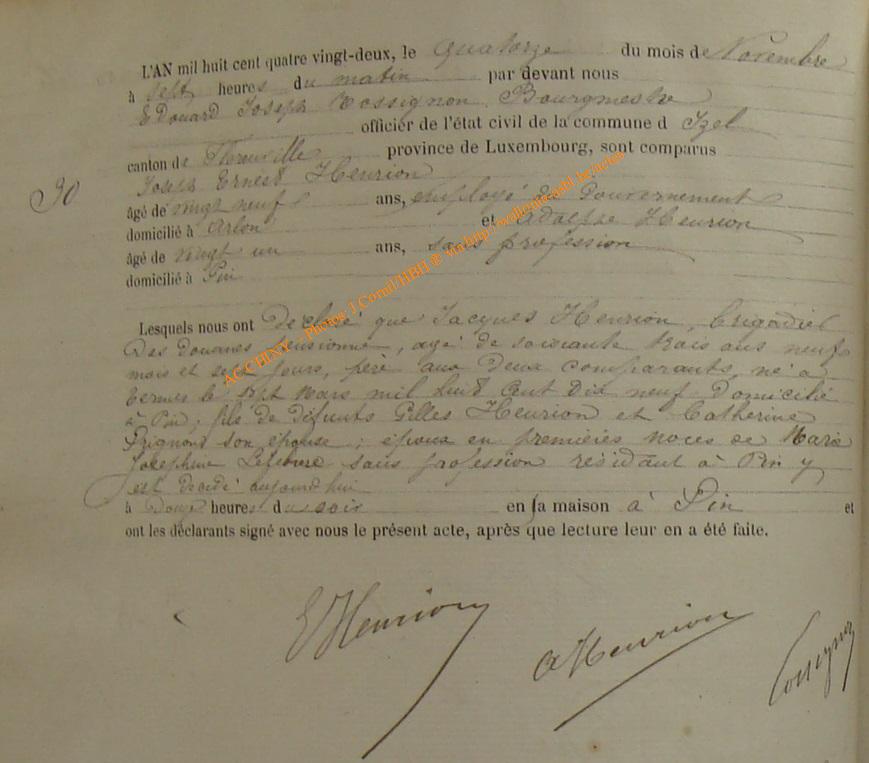 L'AN mil huit cent quatre vingt-deux, le quatorze du mois de Novembre
à sept heures du matin par devant nous
Edouard Joseph Rossignon Bourgmestre
officier de l'état civil de la commune d Izel
canton de Florenville province de Luxembourg, sont comparus
Joseph Ernest Henrion
90
âgé de vingt neuf ans, employé du Gouvernement
domicilié à Arlon et Adolphe Henrion
âgé de vingt un ans, sans profession
domicilié à Pin
Lesquels nous ont déclaré que Jacques Henrion, brigadier
des douanes pensionné, agé de soixante trois ans neuf
mois et sept jours, père aux deux comparants, né à
Termes le sept Mars mil huit cent dix neuf domicilié
à Pin, fils de défunts Gilles Henrion et Catherine
son épouse; époux en premières noces de Marie
Joséphine Lefebvre sans profession résidant à Pin y
est décédé aujourd'hui
à heures du soir en sa maison à Pin et
ont les déclarants signé avec nous le présent acte, après que lecture leur en a été faite.
E Henrion
A Henrion
Rossignon
ACCHINY - Photos J Cornil/HBH @ via http://wallonia.asbl.be/actes